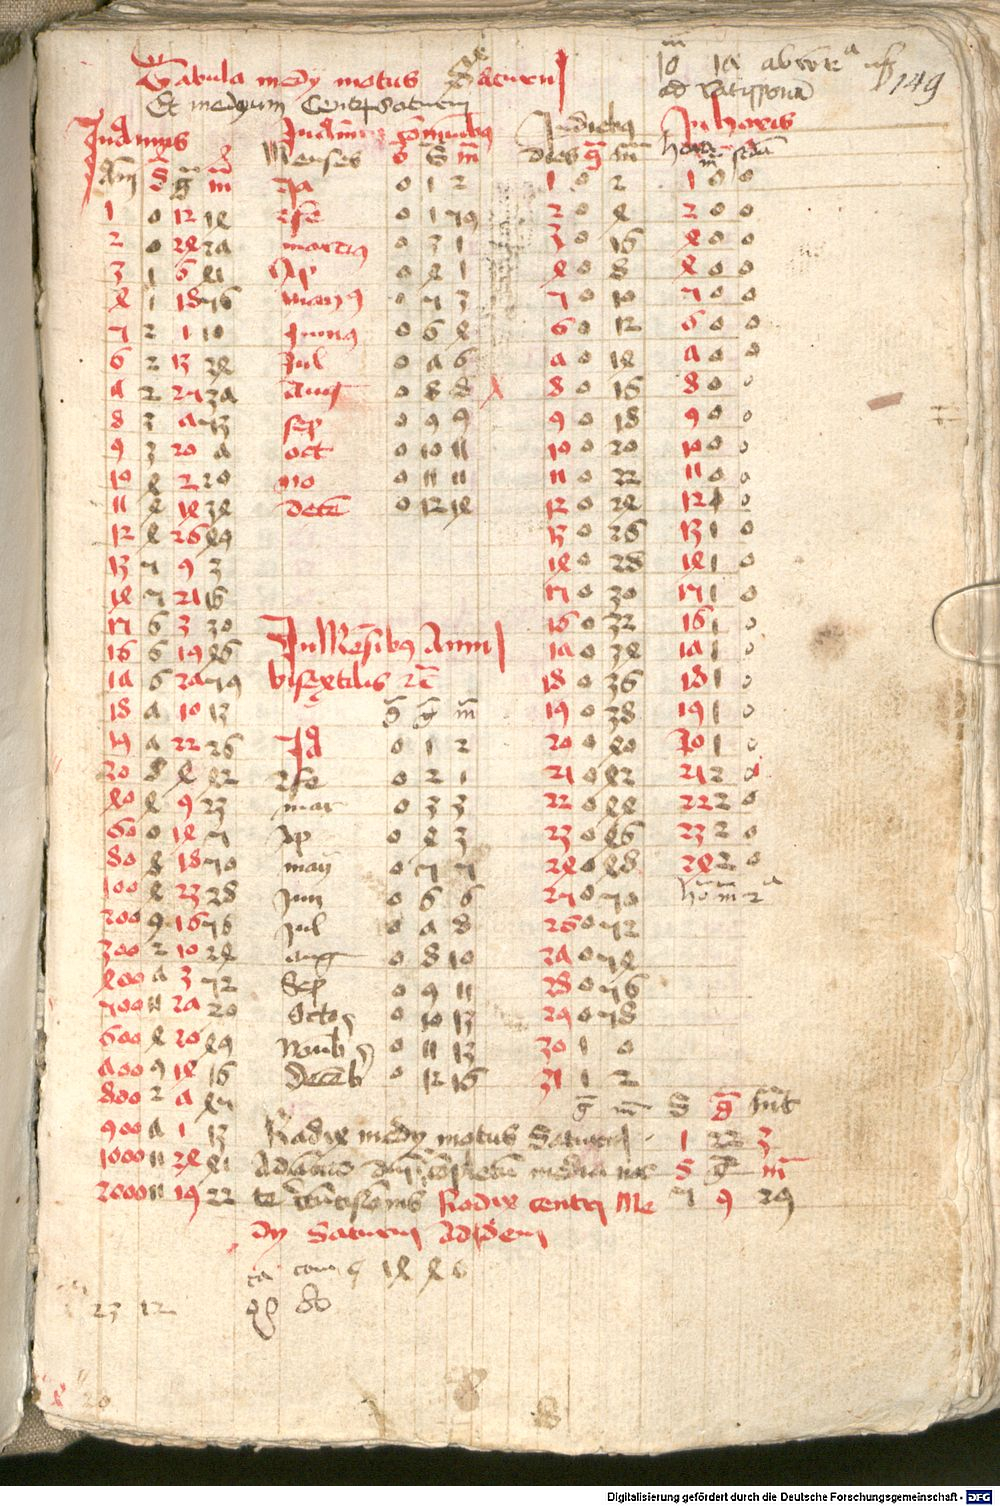 Tabula medy motus Saturni
Et medyum Centri Saturni
149
ad ratispona
In annis
Anni S g m
1 0 12 14
2 0 24 27
3 1 6 41
4 1 18 56
5 2 1 10
6 2 13 24
7 2 25 37
8 3 7 53
9 3 20 7
10 4 2 20
11 4 14 34
12 4 26 49
13 5 9 3
14 5 21 16
15 6 3 30
16 6 15 46
17 6 27 59
18 7 10 13
19 7 22 26
20 8 4 42
40 4 9 23
60 0 14 5
80 8 18 50
100 4 23 28
200 9 16 56
300 2 10 24
400 7 3 52
500 11 27 20
600 4 20 49
700 9 14 16
800 2 7 45
900 7 1 13
1000 11 24 41
2000 11 19 22
Menses S G m
Ja 0 1 2
feb 0 1 59
marcius 0 3 1
Ap 0 4 1
mayus 0 5 3
Junius 0 6 4
Jul 0 7 6
Aug 0 8 8
sep 0 9 9
oct 0 10 11
no 0 11 11
dece 0 12 14
In Mensibus Anni
bisextilis
S g m
Ja 0 1 2
feb 0 2 1
mar 0 3 3
Ap 0 4 3
may 0 5 5
Jun 0 6 6
Jul 0 7 8
aug 0 8 10
Sep 0 9 11
Octo 0 10 13
Novemb 0 11 13
Decemb 0 12 16
In diebus
dies g m
1 0 2
2 0 4
3 0 16
4 0 8
5 0 10
6 0 12
7 0 14
8 0 16
9 0 18
10 0 20
11 0 22
12 0 24
13 0 26
14 0 28
15 0 30
16 0 32
17 0 34
18 0 36
19 0 38
20 0 40
21 0 42
22 0 44
23 0 46
24 0 48
25 0 50
26 0 52
27 0 54
28 0 56
29 0 58
30 1 0
31 1 2
In horis
hora m secunda
1 0 0
2 0 0
4 0 0
4 0 0
5 0 0
6 0 0
7 0 0
8 0 0
9 0 0
10 0 0
11 0 0
12 1 0
13 1 0
14 1 0
15 1 0
16 1 0
17 1 0
18 1 0
19 1 0
20 1 0
21 2 0
22 2 0
23 2 0
24 2 0
g m S g minut
Radix medy motus Saturni 1 22 3
S g m
Radix centri Me 5 9 29
dy Saturni Ad idem
23 12
20
Digitalisierung gefördert durch die Deutsche Forschungsgemeinschaft - DFG